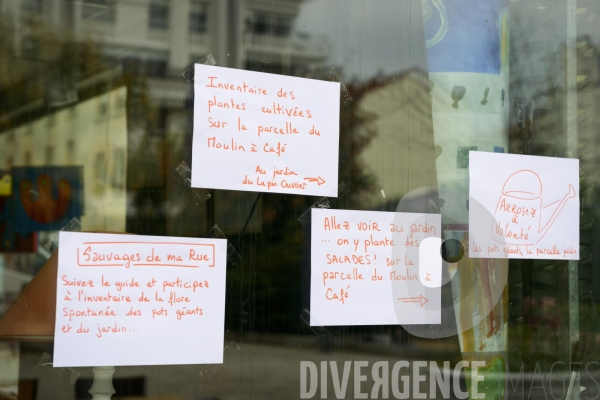 Inventaire des
plantes cultivées
sur la parcelle du
Moulin à Café
Au jardin
du Lapin Ouvrier
Sauvages de ma Rue
Suivez le guide et participez
à l'inventaire de la flore
spontanée des pots géants
et du jardin...
Allez voir au jardin
... on y plante des
SALADES! sur la
parcelle du Moulin à
Café
ARROSEZ
à
Volonté
les pots géants, la parcelle jardin
DIVERGENCE IMAGES